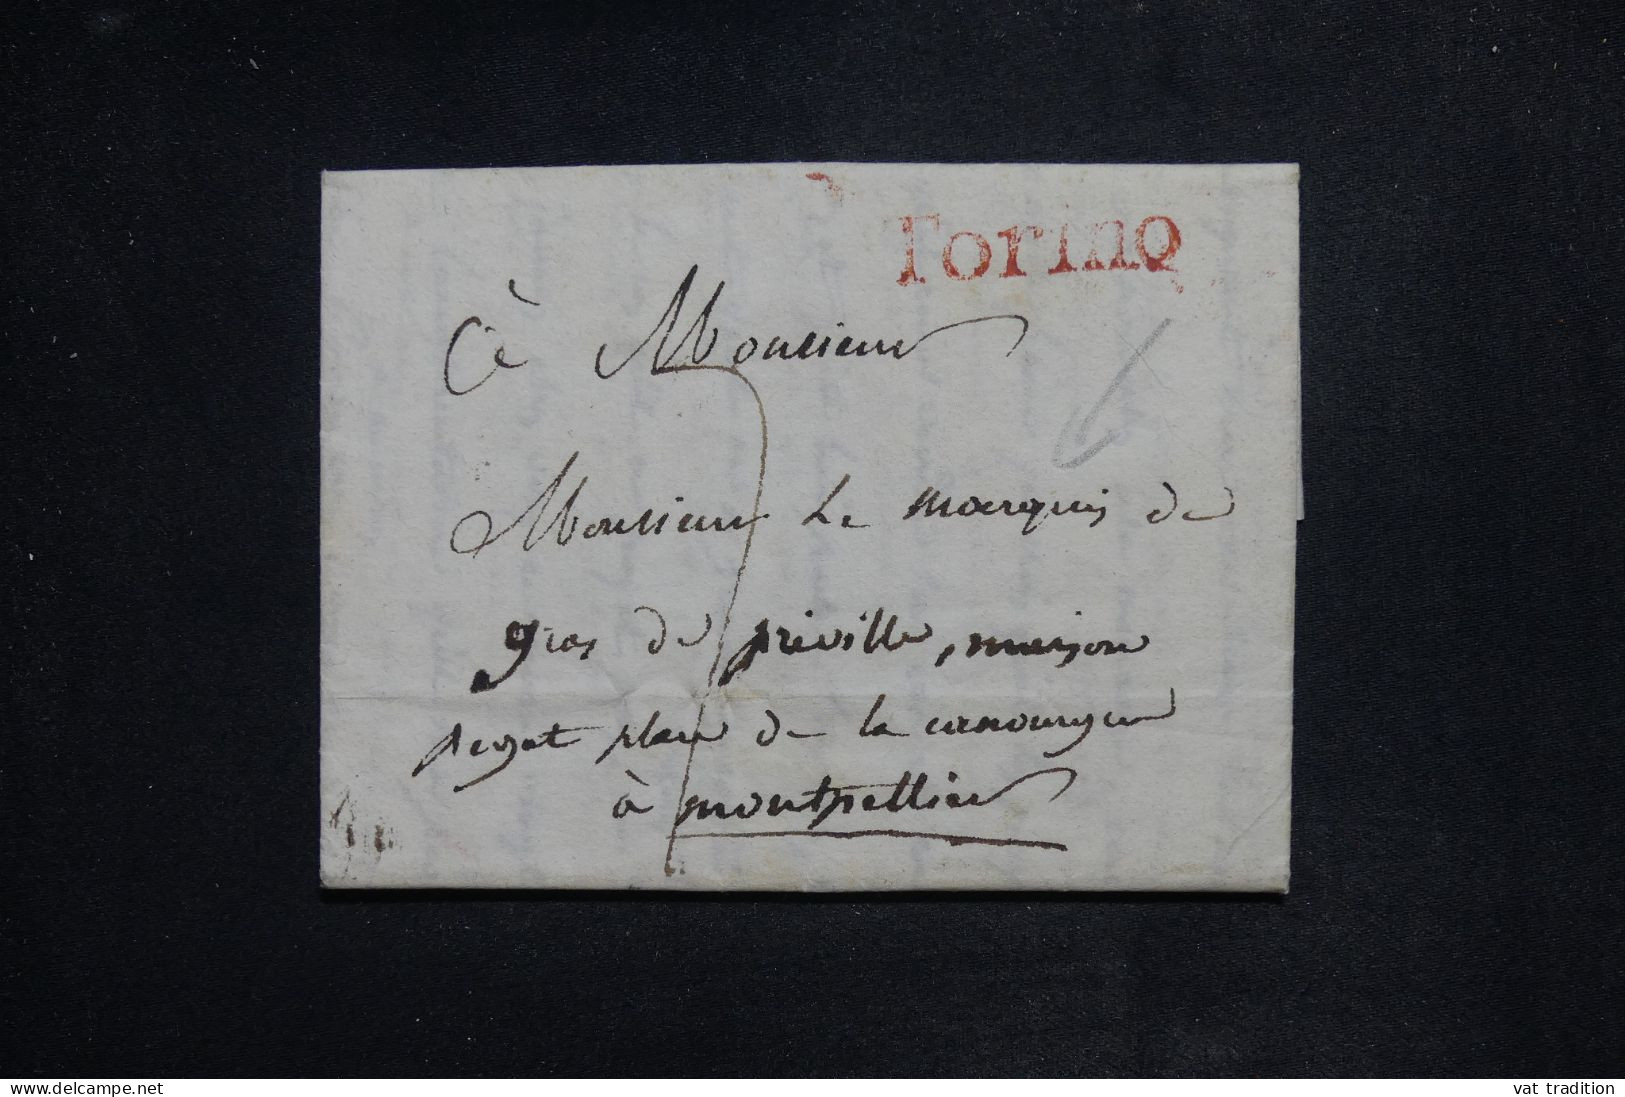 Torino
à Monsieur
Monsieur Le marquis de
gras de préville, maison
place de la canourgue
à montpellier
delcampe.net
vat tradition